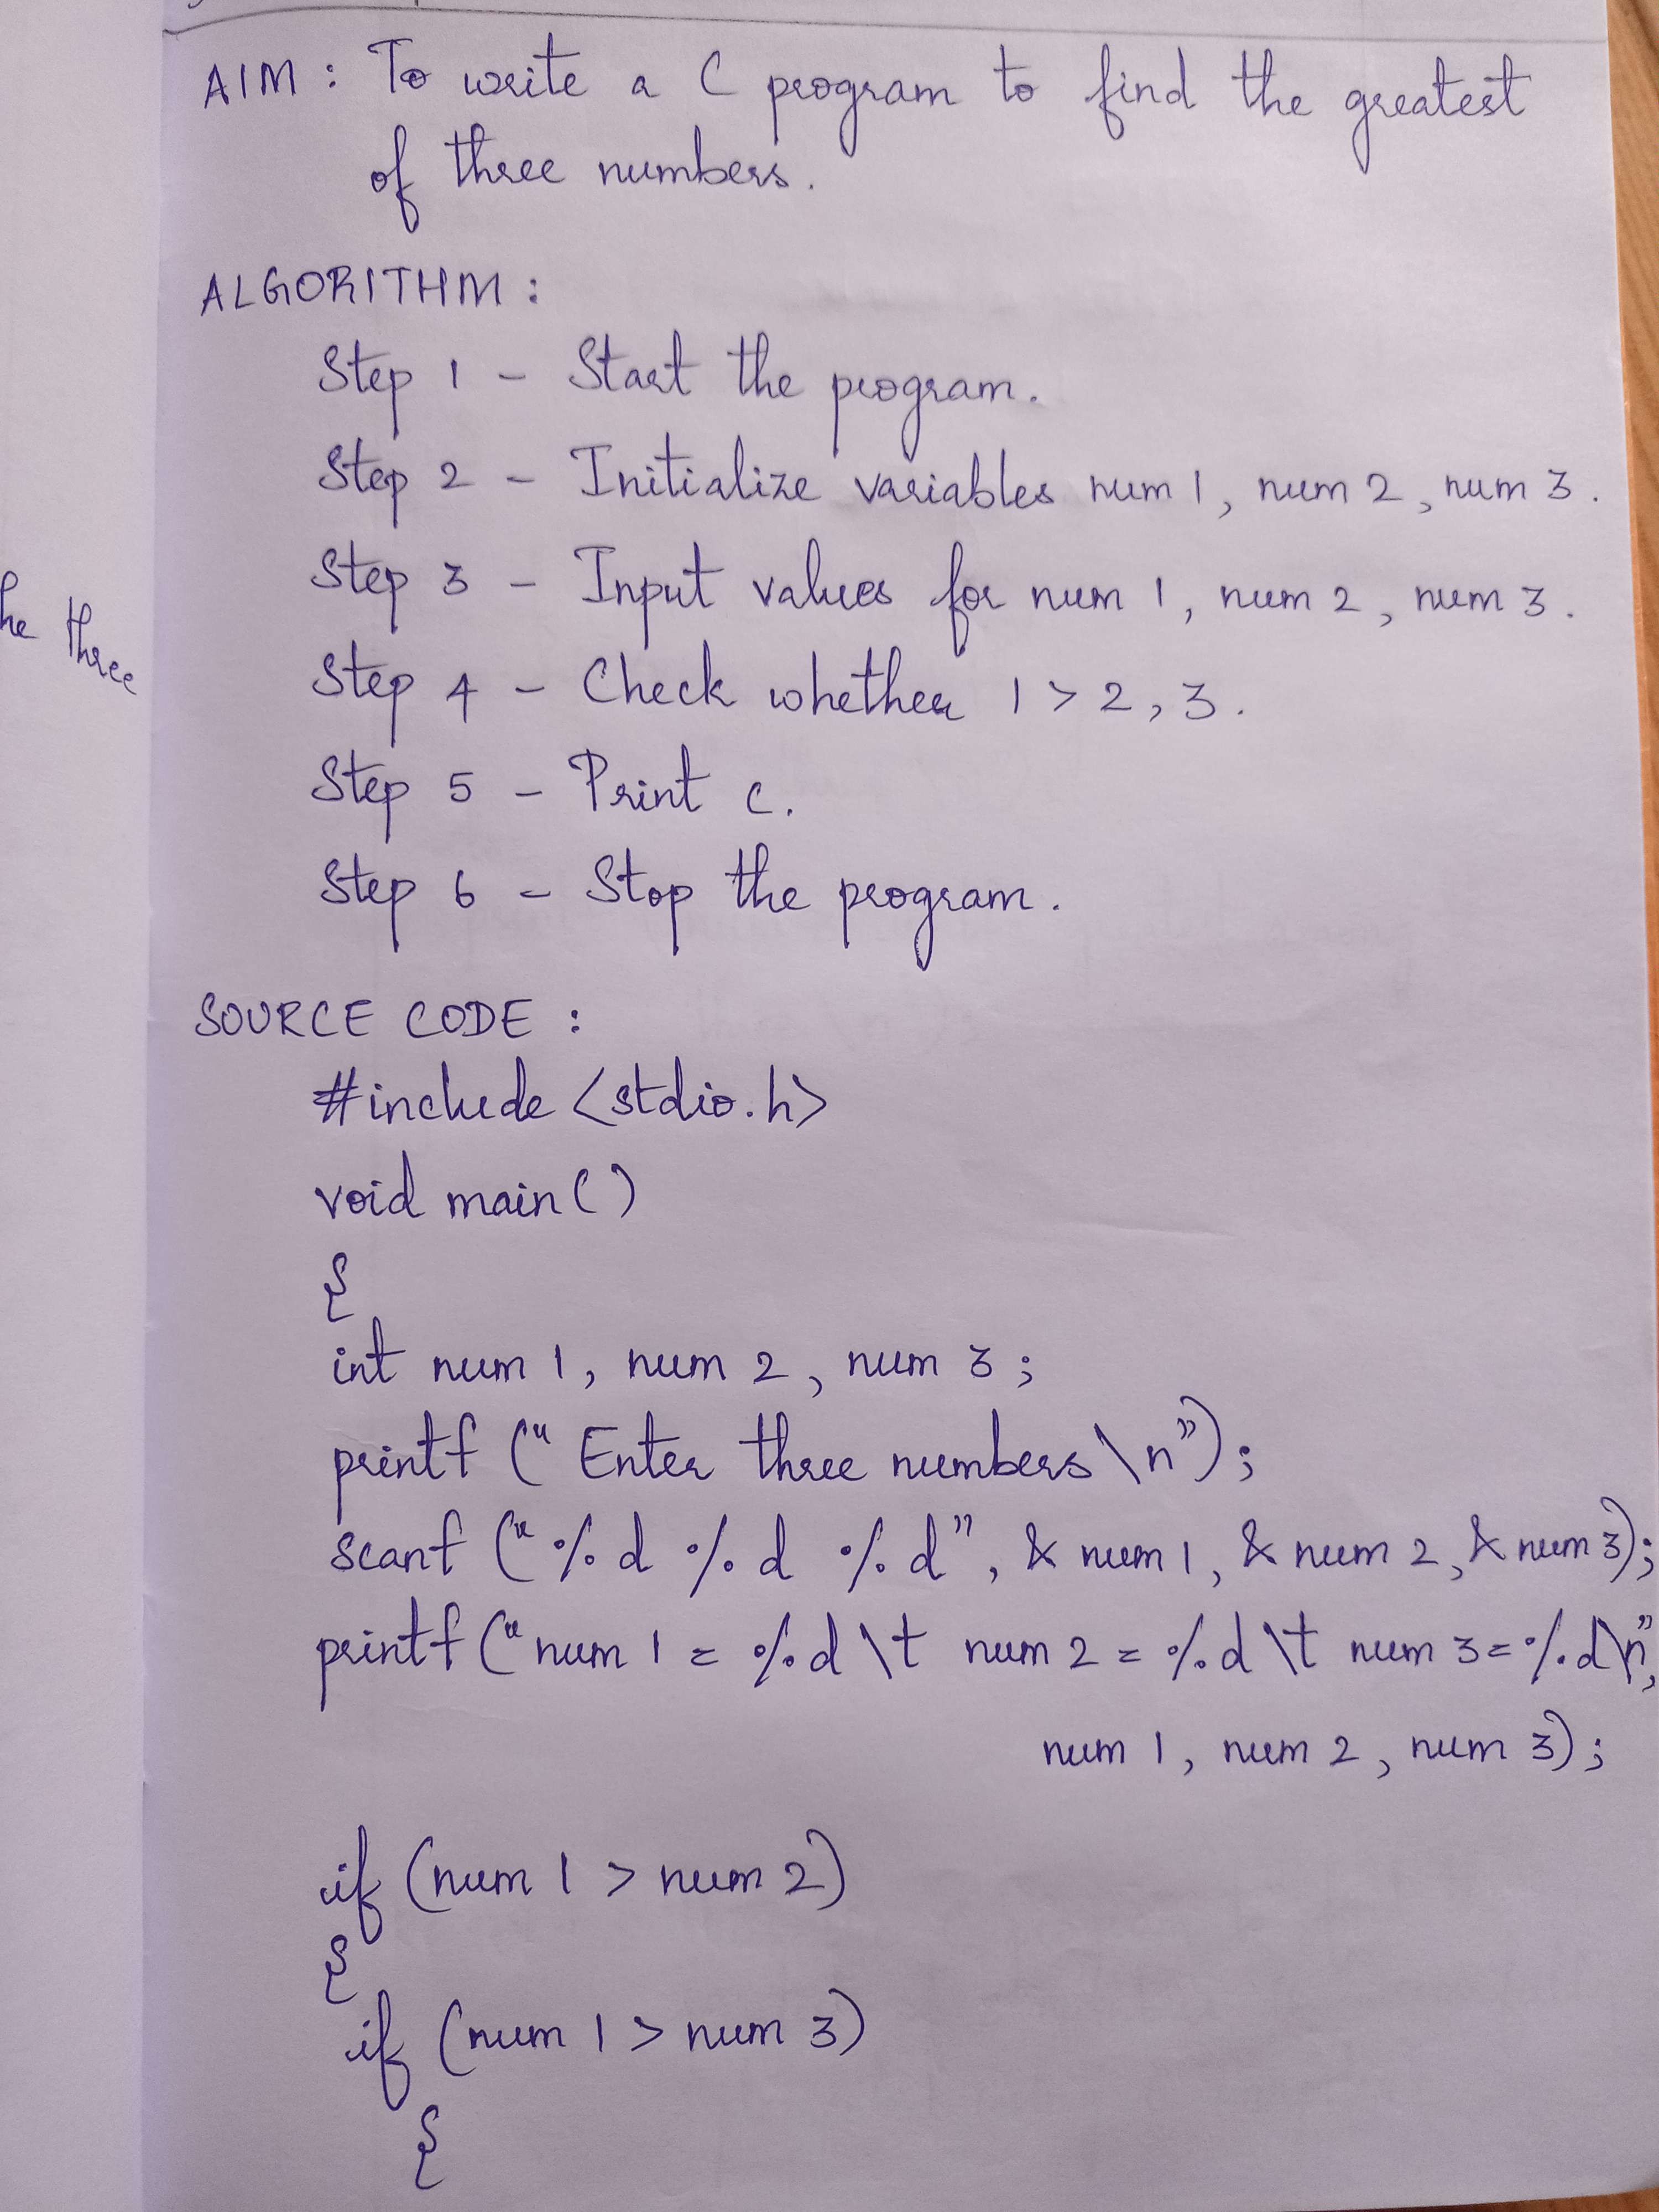 he three
AIM : To write a C program to find the greatest
of three numbers.
ALGORITHM :
Step 1 - Start the program.
Step 2 - Initialize variables num 1, num 2, num 3.
Step 3 - Input values for num 1, num 2, num 3.
Step 4 - Check whether 1 > 2, 3.
Step 5 - Print c.
Step 6 - Stop the program.
SOURCE CODE :
#include <stdio.h>
void main ( )
{
int num 1, num 2, num 3 ;
printf (" Enter three numbers \n");
scanf ("%d %d %d", & num 1, & num 2, & num 3);
printf ("num 1 = %d \t num 2 = %d \t num 3 = %d\n",
num 1, num 2, num 3);
if (num 1 > num 2)
{
if (num 1 > num 3)
{